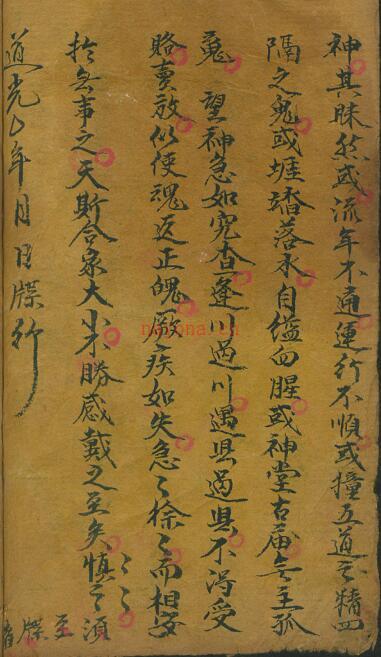 神其昧然或流年不通運行不順或撞五道之精四
隔之鬼或堐踏落水自缢血腥或神堂古廟無主孤
䰟 望神急如究查逢川過川遇县過县不淂受
賂賣放似使魂返正魄厥疾如失急々徐々而相安
扵無事之天斯合家大小不勝感戴之至矣慎之須
々々 至牒者
道光 年 月 日牒行